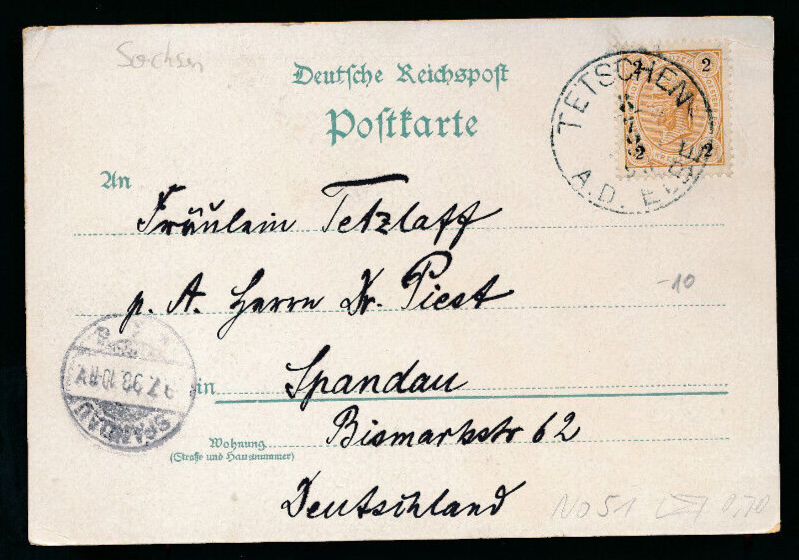 Sachsen
Deutsche Reichspost
Postkarte
2 2
2 2
TETSCHEN
A.D. ELBE
An
Fräulein Tetzlaff
p. A. Herrn Dr. Piest
-10
in Spandau
7.98.10-11V.
SPANDAU
Bismarkstr 62
Wohnung
(Straße und Hausnummer)
Deutschland
No 51 0,70